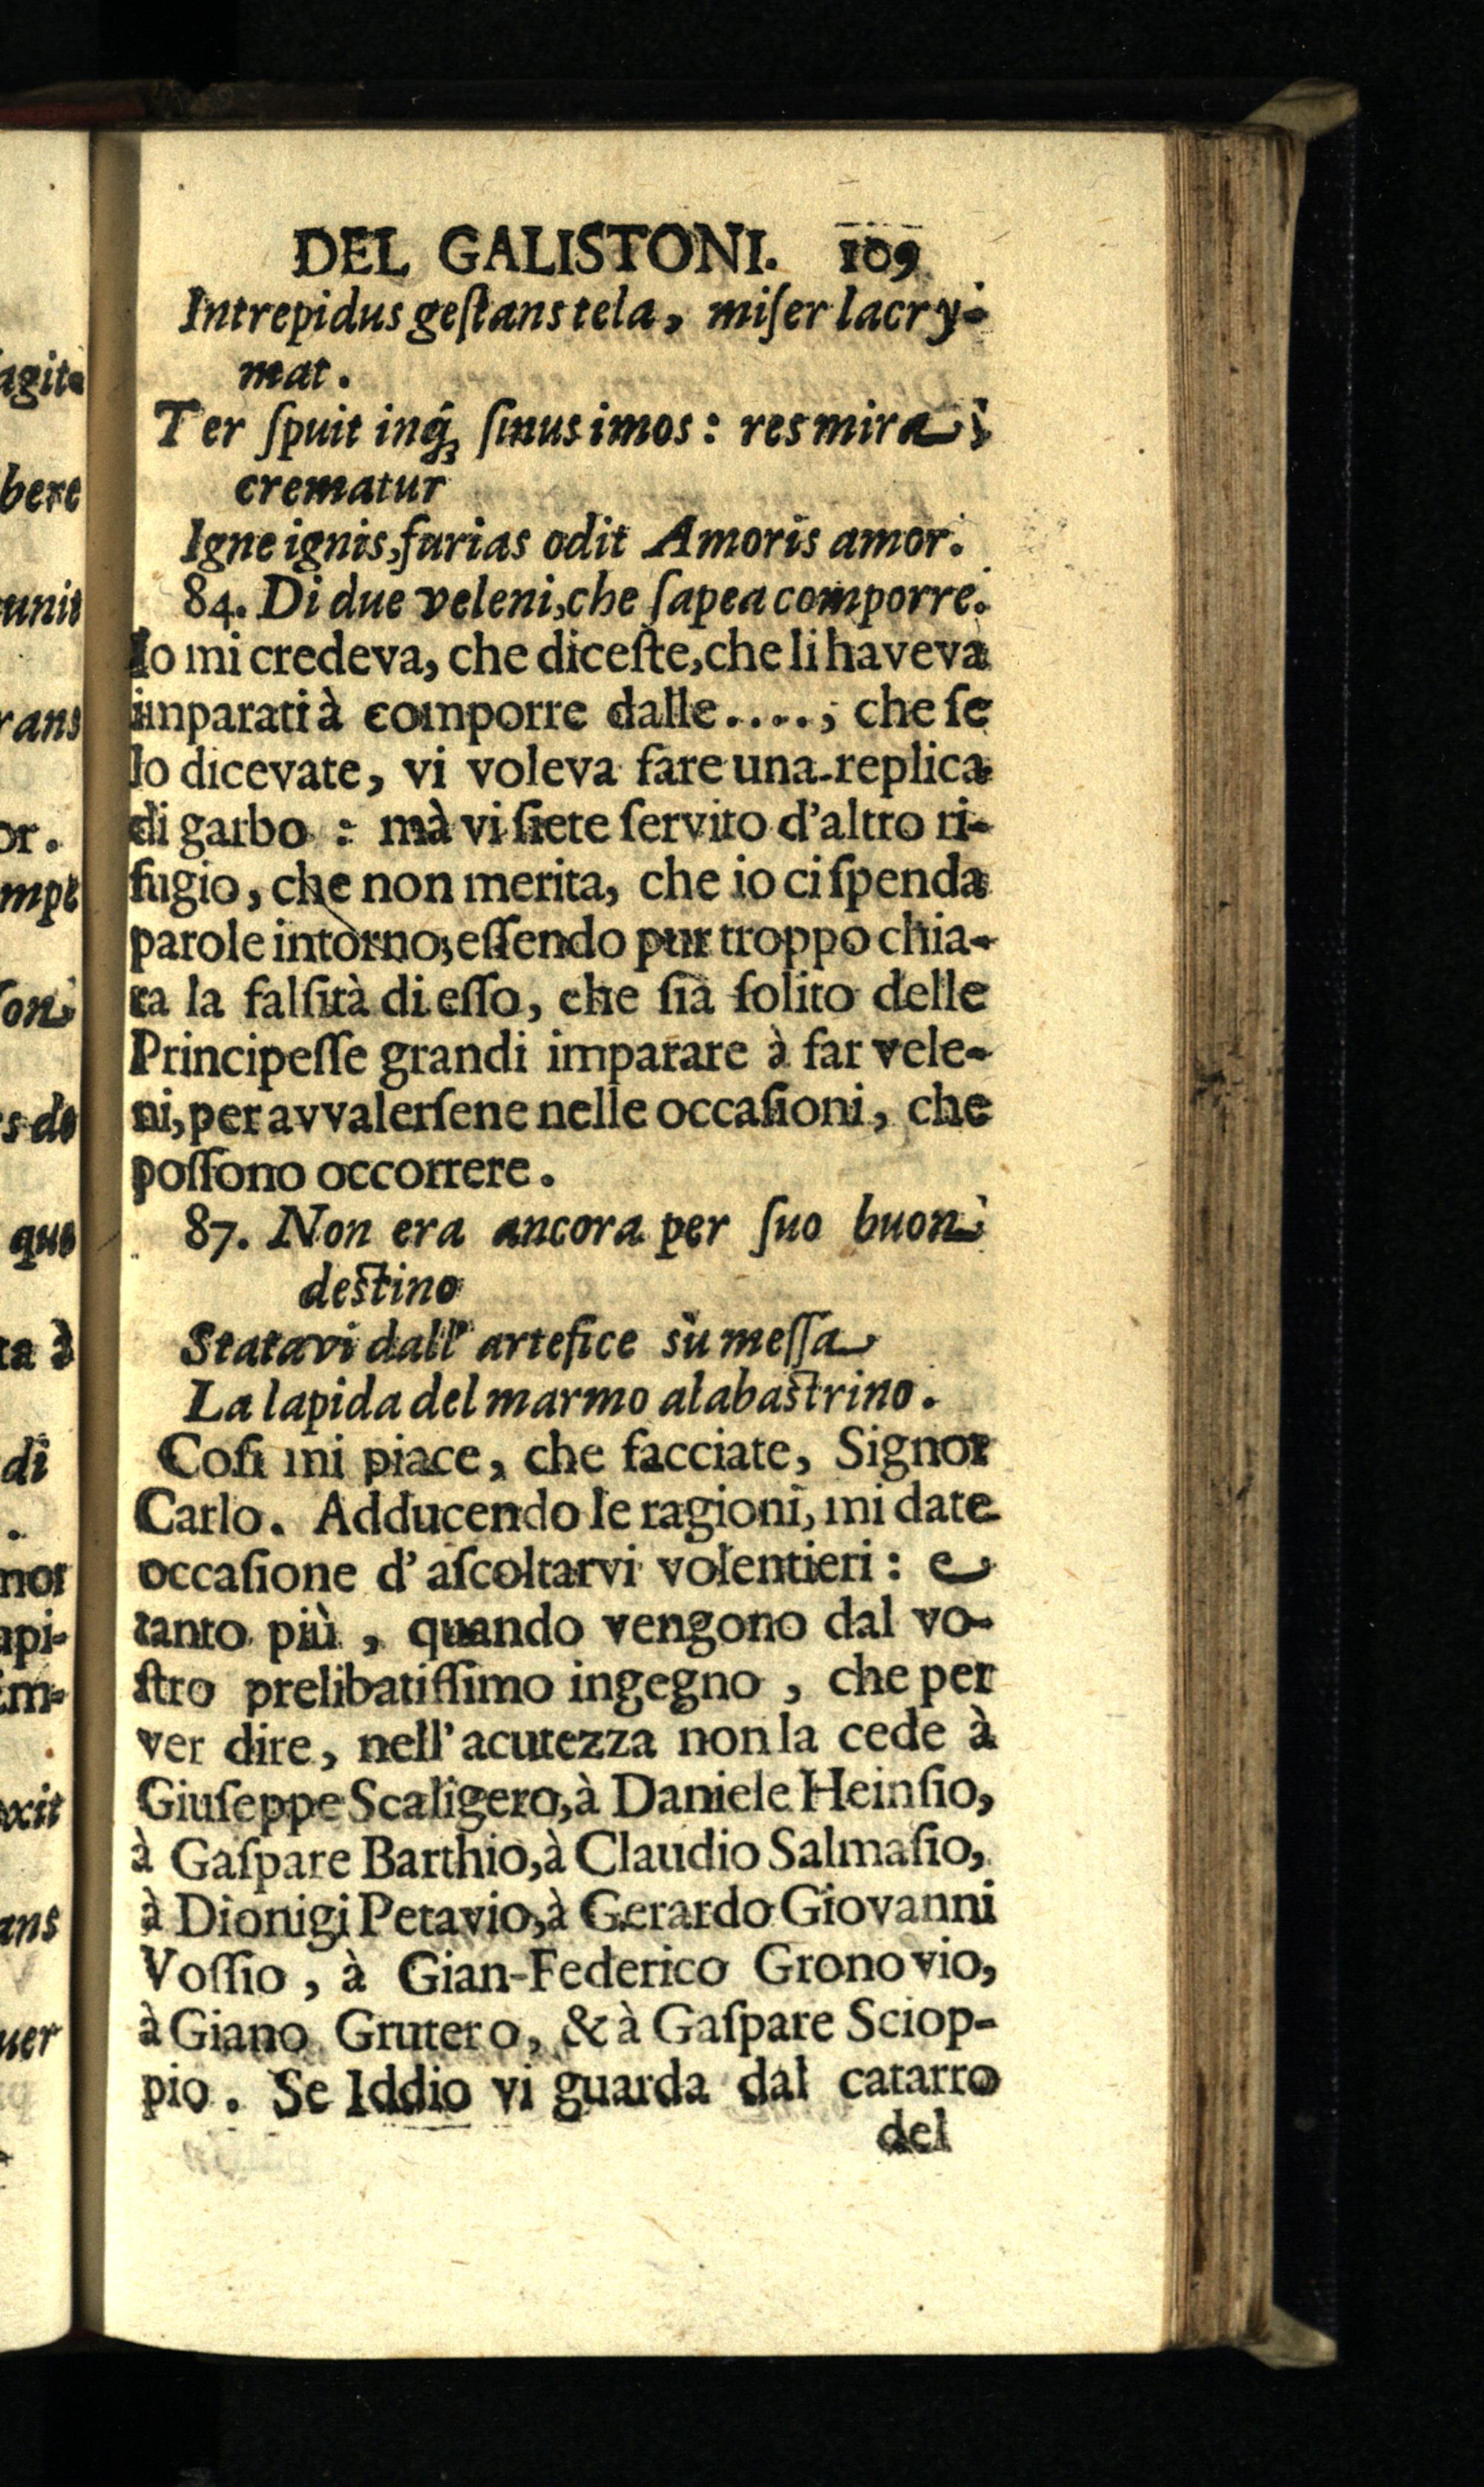 DEL GALISTONI. 109
Intrepidus geſtans tela, miſer lacry-
mat.
Ter ſpuit inq́; ſinus imos: res mira
crematur
Igne ignis, furias odit Amoris amor.
84. Di due veleni, che ſapea comporre.
Io mi credeva, che diceſte, che li haveva
imparati à comporre dalle....; che ſe
lo dicevate, vi voleva fare una replica
di garbo: mà vi ſiete ſervito d'altro ri-
fugio, che non merita, che io ci ſpenda
parole intorno; eſſendo pur troppo chia-
ra la falſità di eſſo, che ſia ſolito delle
Principeſſe grandi imparare à far vele-
ni, per avvalerſene nelle occaſioni, che
poſſono occorrere.
87. Non era ancora per ſuo buon
deſtino
Statavi dall' artefice sù meſſa
La lapida del marmo alabaſtrino.
Coſi mi piace, che facciate, Signor
Carlo. Adducendo le ragioni, mi date
occaſione d'aſcoltarvi volentieri: e
tanto più, quando vengono dal vo-
ſtro prelibatiſſimo ingegno, che per
ver dire, nell'acutezza non la cede à
Giuſeppe Scaligero, à Daniele Heinſio,
à Gaſpare Barthio, à Claudio Salmaſio,
à Dionigi Petavio, à Gerardo Giovanni
Voſſio, à Gian-Federico Gronovio,
à Giano Grutero, & à Gaſpare Sciop-
pio. Se Iddio vi guarda dal catarro
del